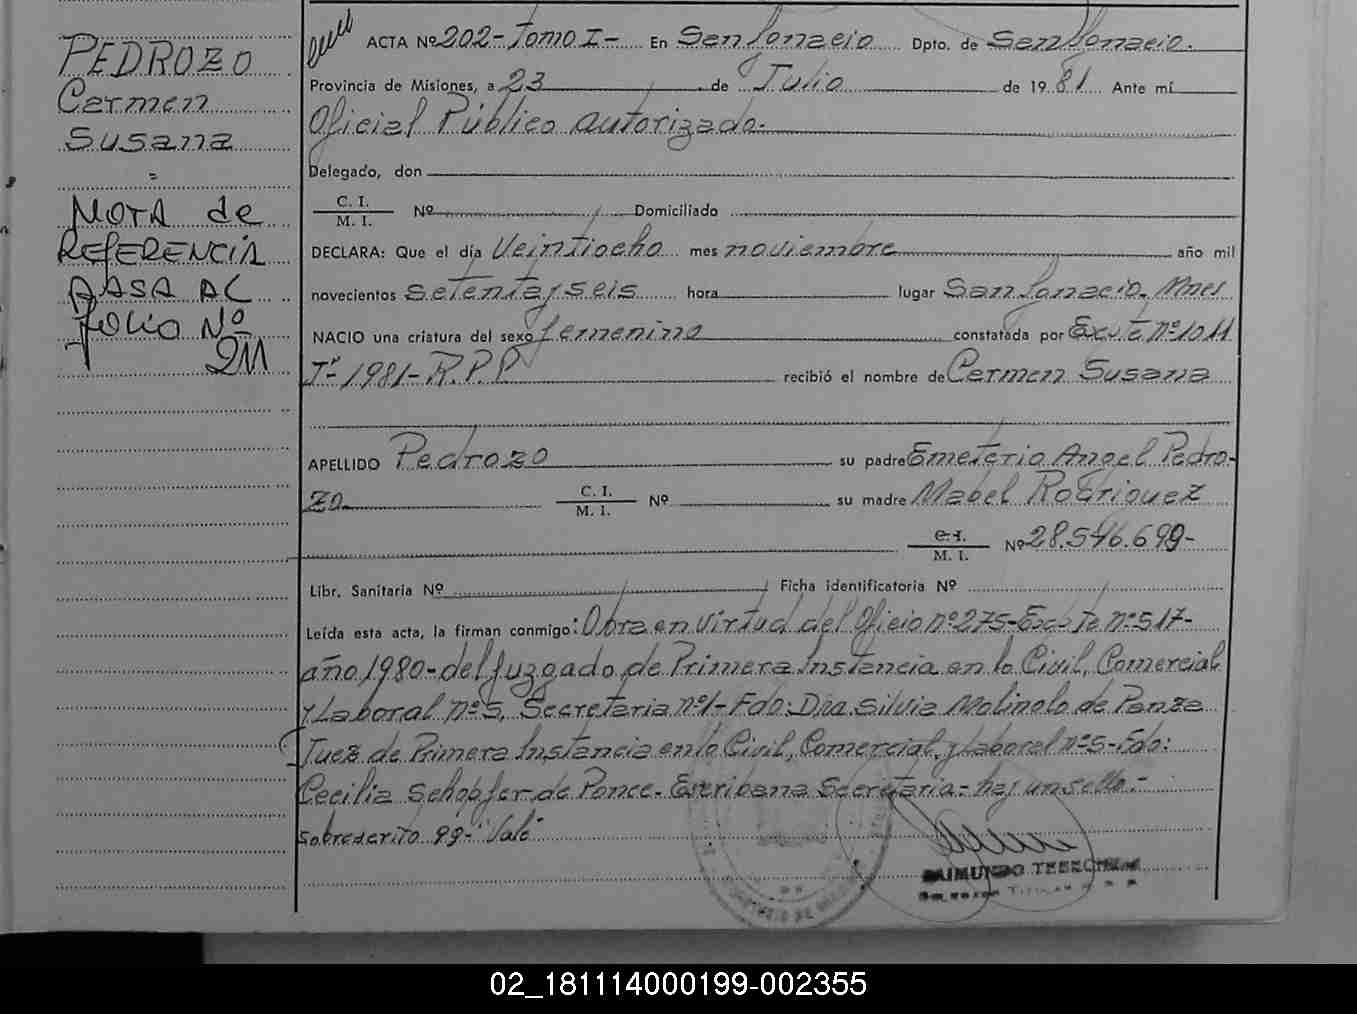 PEDROZO
Carmen
Susana
=
NOTA de
REFERENCIA
PASA AL
folio Nº
211
ACTA Nº 202- Tomo I- En San Ignacio Dpto. de San Ignacio.
Provincia de Misiones, a 23 de Julio de 1981 Ante mí
Oficial Público autorizado.
Delegado, don
C. I.
M. I. Nº Domiciliado
DECLARA: Que el día Veintiocho mes noviembre año mil
novecientos setentayseis hora lugar San Ignacio. Mnes
NACIO una criatura del sexo femenino constatada por Excte nº 1011
Tº 1981- R.P.P. recibió el nombre de Carmen Susana
APELLIDO Pedrozo su padre Emeterio Angel Pedro-
zo C. I. M. I. Nº su madre Mabel Rodriguez
C. I.
M. I. Nº 28.546.699-
Libr. Sanitaria Nº Ficha identificatoria Nº
Leída esta acta, la firman conmigo: Obra en virtud del Oficio nº 275- Excte nº 517-
año 1980- del Juzgado de Primera Instancia en lo Civil, Comercial
y Laboral nº 5, Secretaria nº 1- Fdo: Dra. Silvia Molinolo de Panza
Juez de Primera Instancia en lo Civil, Comercial, y Laboral nº 5- Fdo:
Cecilia Schopfer de Ponce- Escribana Secretaria- hay un sello.-
Sobrescrito 99- "Vale"
RAIMUNDO
02_181114000199-002355